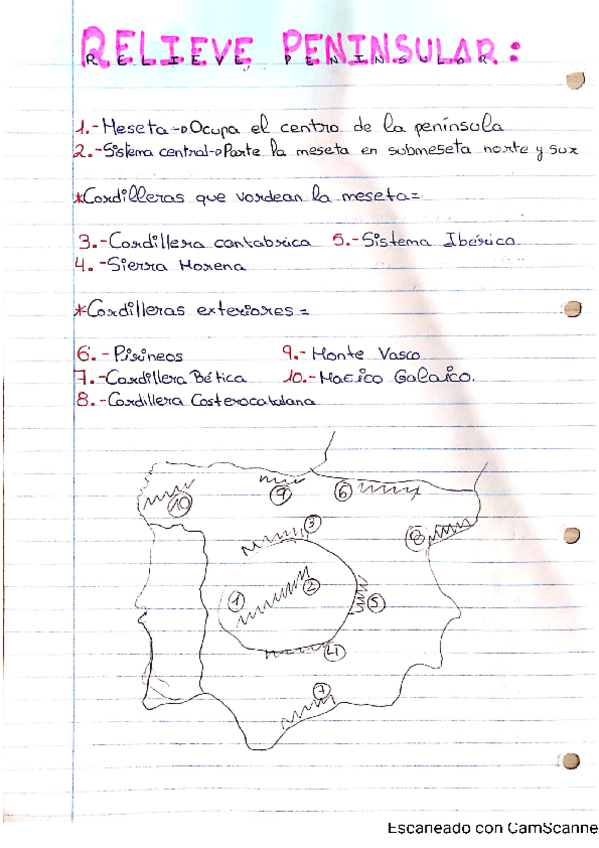 RELIEVE PENINSULAR:
1.-Meseta→Ocupa el centro de la península
2.-Sistema central→Parte la meseta en submeseta norte y sur
*Cordilleras que vordean la meseta=
3.-Cordillera contabrica 5.-Sistema Ibérico
4.-Sierra Morena
*Cordilleras exteriores=
6.-Pirineos 9.-Monte Vasco
7.-Cordillera Bética 10.-Macico Galaico.
8.-Cordillera Costerocatalana
10 9 6
3 8
1 2 5
4
7
Escaneado con CamScanne